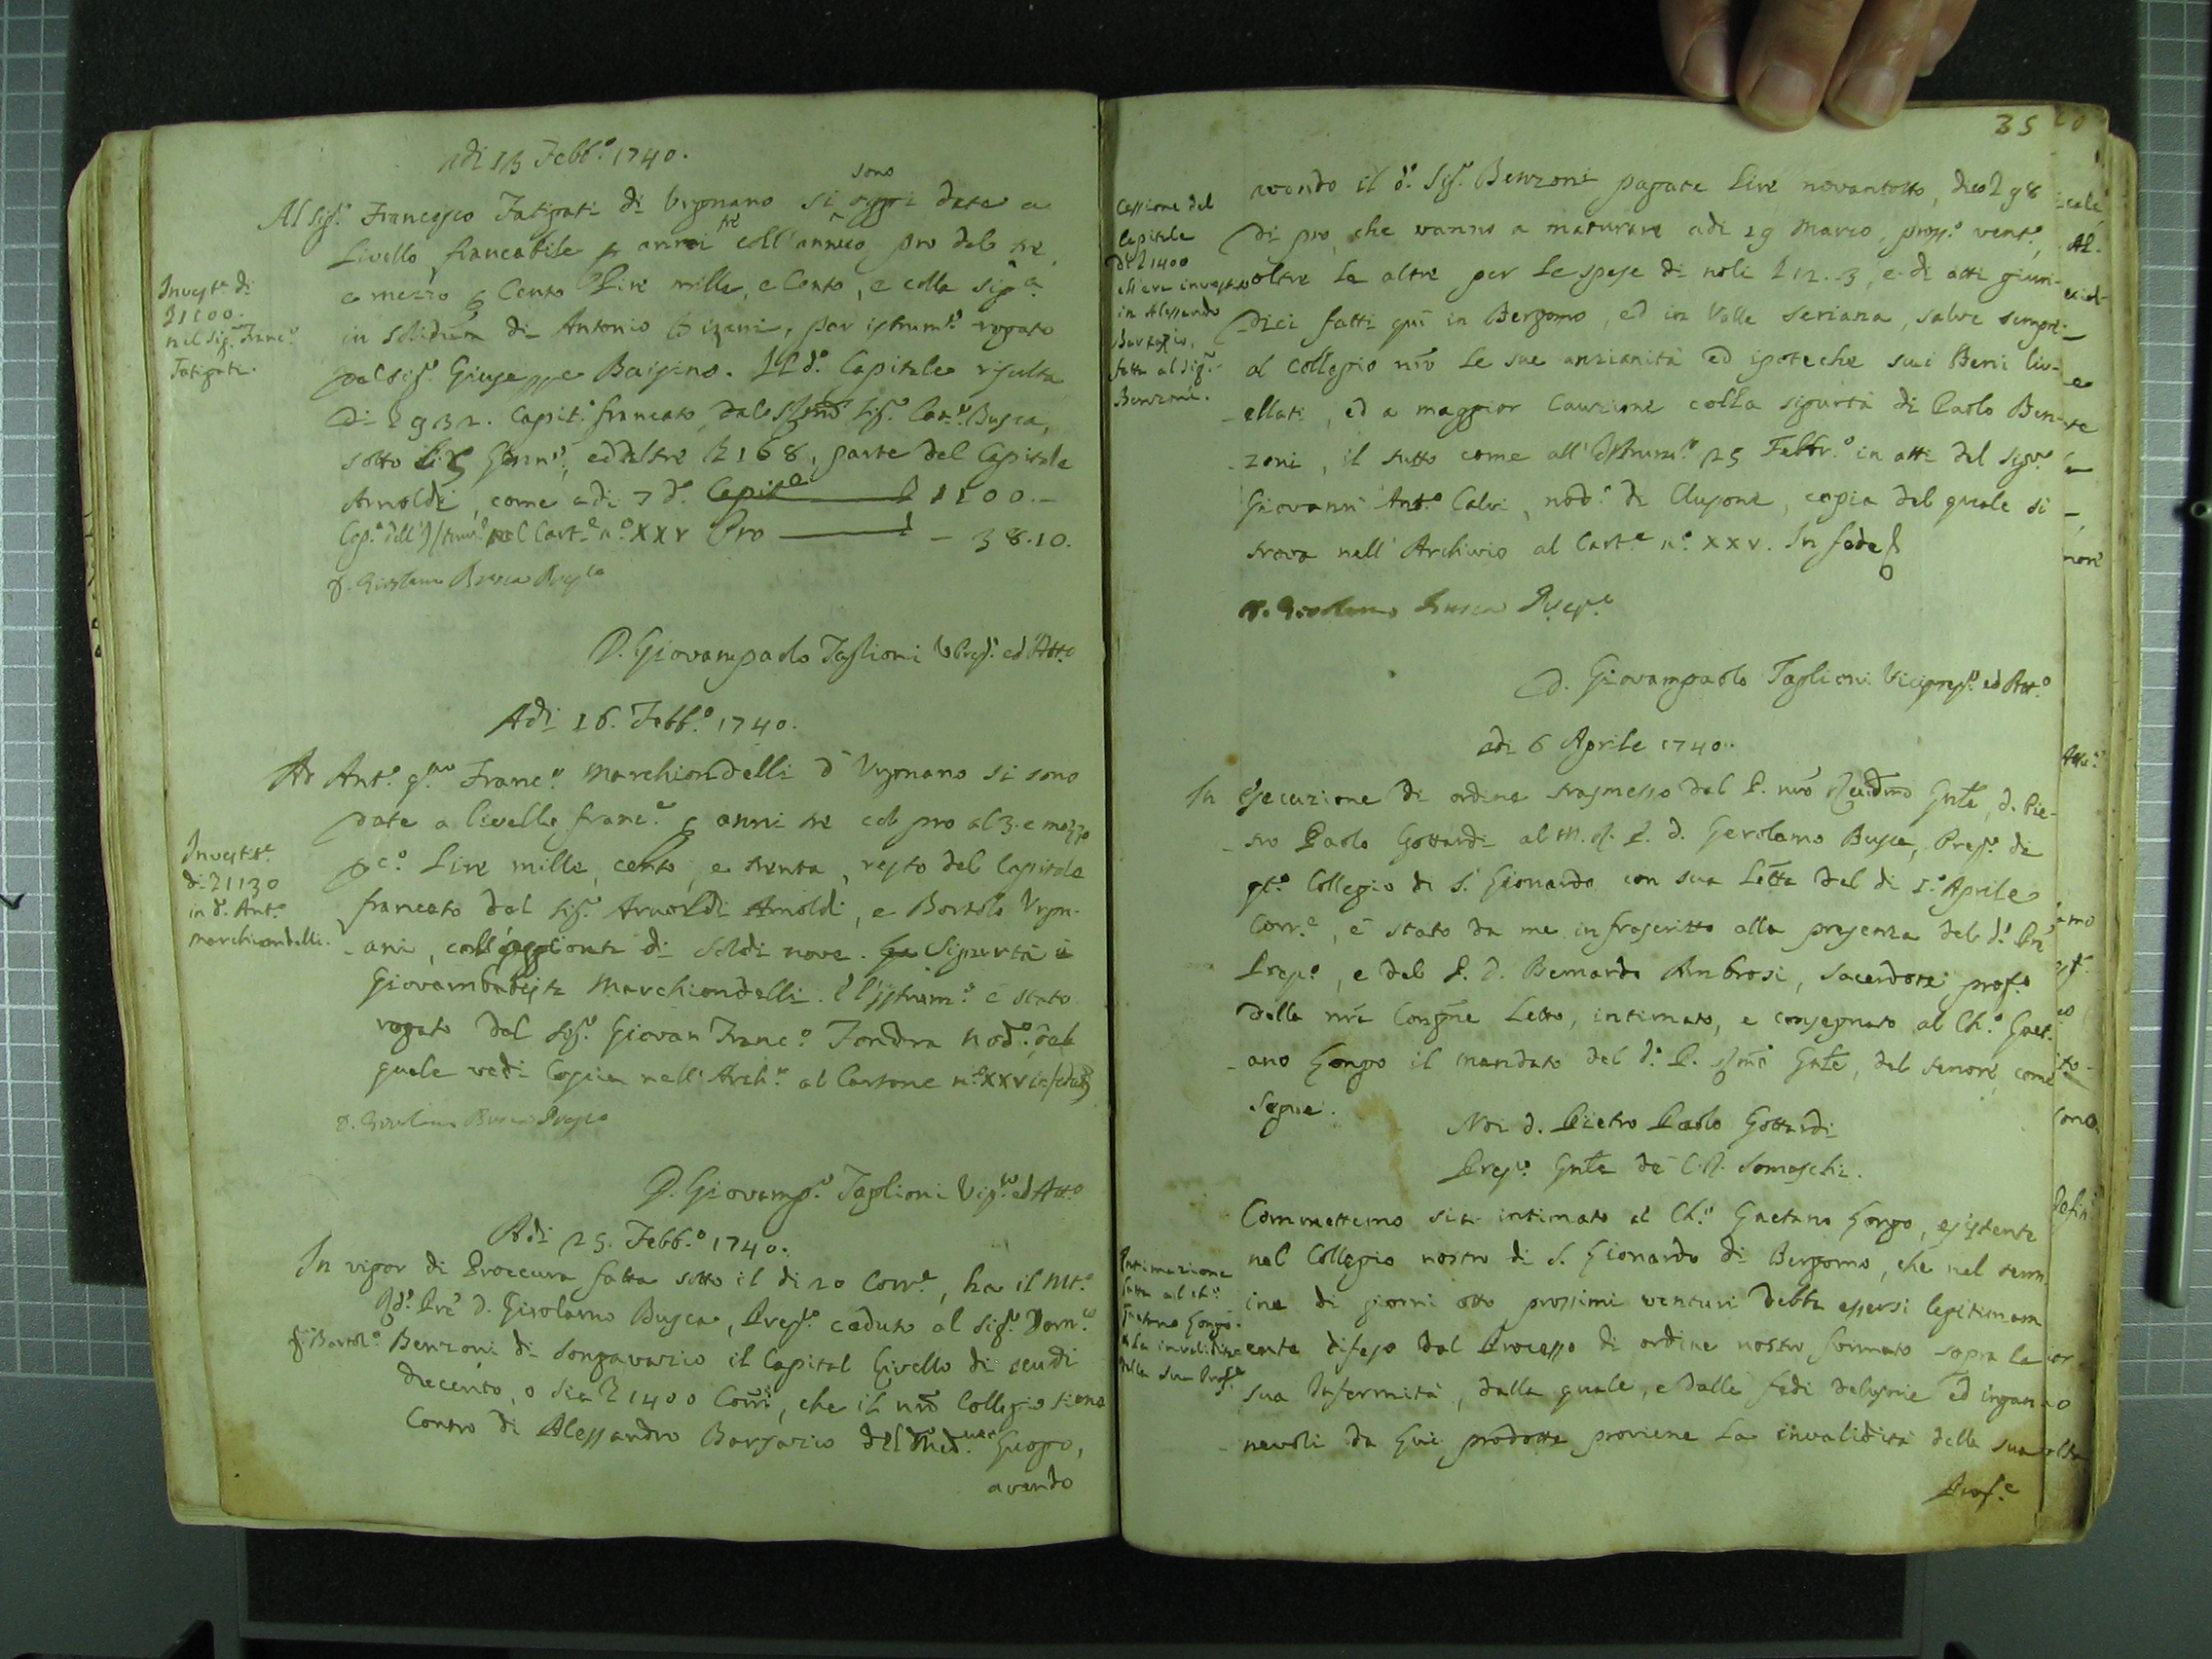 adi 13 Febb.º 1740.
sono
Al Sig.r Francesco Fatigati di Vrgnano si oggi date a
tre
Livello francabile p anni coll'annuo pro del tre,
e mezzo p Cento Lire mille, e Cento, e colla sig.a
in solidum di Antonio Pizeni, per istrum.to rogato
dal Sig.r Giuseppe Baizino. Il d.º Capitale risulta
di L 932. Capit. francato dal Sig.r Busca,
sotto li Genn.º, ed altre L 168, parte del Capitale
Arnoldi, come adi 7 d.º Capit.e L 1100.-
Cop.a dell'Istrum.º nel Cart.e n.º XXV Pro - 38.10.
D. Girolamo Busca Prep.to
Invest.a di
L 1100.
nel Sig.r Franc.º
Fatigati.
D. Giovampaolo Taglioni V.Prep.º ed Att.º
Adi 16. Febb.º 1740.
Ad Ant.º q.m Franc.º Marchiondelli d'Vrgnano si sono
date a livello franc.e p anni tre col pro al 3. e mezzo
p c.º Lire mille, cento, e trenta, resto del Capitale
francato dal Sig.r Arnoldi Arnoldi, e Bortolo Vrgn-
-ani, coll'aggionta di soldi nove. Sigurtà è
Giovambatista Marchiondelli. L'istrum.º è stato
rogato dal Sig.r Giovan Franc.º Fondra Nod.º, del
quale vedi Copia nell'Arch.º al Cartone n.º XXV in fede
D. Girolamo Busca Prep.to
Investit.e
di L 1130
in d.º Ant.º
Marchiondelli.
D. Giovamp.º Taglioni Vip.to ed Att.º
Adi 25. Febb.º 1740.
In vigor di Proccura fatta sotto il di 20 Corr.e, ha il Mt.º
Rd.º Prē D. Girolamo Busca, Prep.º ceduto al Sig.r Dom.co
q Bartol.º Benzoni di Songavazio il Capital Livello di scudi
ducento, o sia L 1400 Corr̄i, che il nr̄o Collegio tiene
Contro di Alessandro Borsazio del Med.mo Luogo,
avendo
35
Cessione del
Capitale
di L 1400
ch'era investito
in Alessandro
Borsazio,
fatta al Sig.r
Benzoni.
avendo il d.º Sig.r Benzoni pagate Lire novantotto, dico L 98
di pro, che vanno a maturare adi 29 Marzo, pross.º vent.º,
oltre le altre per le spese di noli L 12.3, e di atti giuri-
dici fatti quì in Bergomo, ed in Valle Seriana, salve sempre
al Collegio nr̄o le sue anzianità ed ipoteche sui Beni liv-
-ellati, ed a maggior Cauzione colla sigurtà di Paolo Ben-
-zoni, il tutto come all'Istrum.to 25 Febbr.º in atti del Sig.r
Giovanni Ant.º Calvi, nod.º di Clusone, copia del quale si
trova nell'Archivio al Cart.e n.º XXV. In fede
D. Girolamo Busca Prep.to
D. Giovampaolo Taglioni Viceprep.º ed Att.º
adi 6 Aprile 1740.
In esecuzione di ordine trasmesso dal P. nr̄o Rev̄dmo Gn̄le, D. Pie-
-tro Paolo Gottardi al M. R. P. D. Gerolamo Busca, Prep.º di
qt.º Collegio di S. Lionardo con sua Let̄ta del di 1.º Aprile
Corr.e, è stato da me infrascritto alla presenza del d.º Prē
Prep.º, e del P. D. Bernardo Ambrosi, Sacerdote prof.º
della nr̄a Congn̄e Letto, intimato, e consegnato al Ch.º Gaet-
-ano Longo il mandato del d.º P. Gn̄le, del tenore come
segue.
Noi D. Pietro Paolo Gottardi
Prep.º Gn̄le de C. R. Somaschi.
Commettemo sia intimato al Ch.º Gaetano Longo, esistente
nel Collegio nostro di S. Lionardo di Bergomo, che nel term
ine di giorni otto prossimi venturi debba essersi legitimam
ente difeso dal Processo di ordine nostro formato sopra la
sua Infermità, dalla quale, e dalle fedi delusorie ed ingan-
-nevoli da Lui prodotte proviene la invalidità della sua
Prof.e
Intimazione
fatta al Ch.º
Gaetano Longo
della invalidità
della sua Prof.e